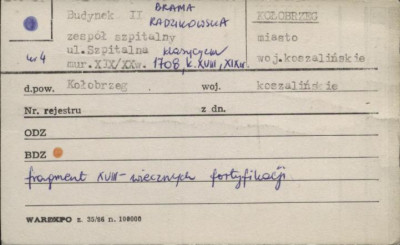 Budynek II BRAMA RADZIKOWSKA KOŁOBRZEG
zespół szpitalny miasto
nr 4 ul.Szpitalna klasycyzm woj.koszalińskie
mur.XIX/XXw. 1708, k. XVIII, XIXw.
d.pow. Kołobrzeg woj. koszalińskie
Nr. rejestru z dn.
ODZ
BDZ
fragment XVIII-wiecznych fortyfikacji
WAREXPO z. 35/66 n. 100000